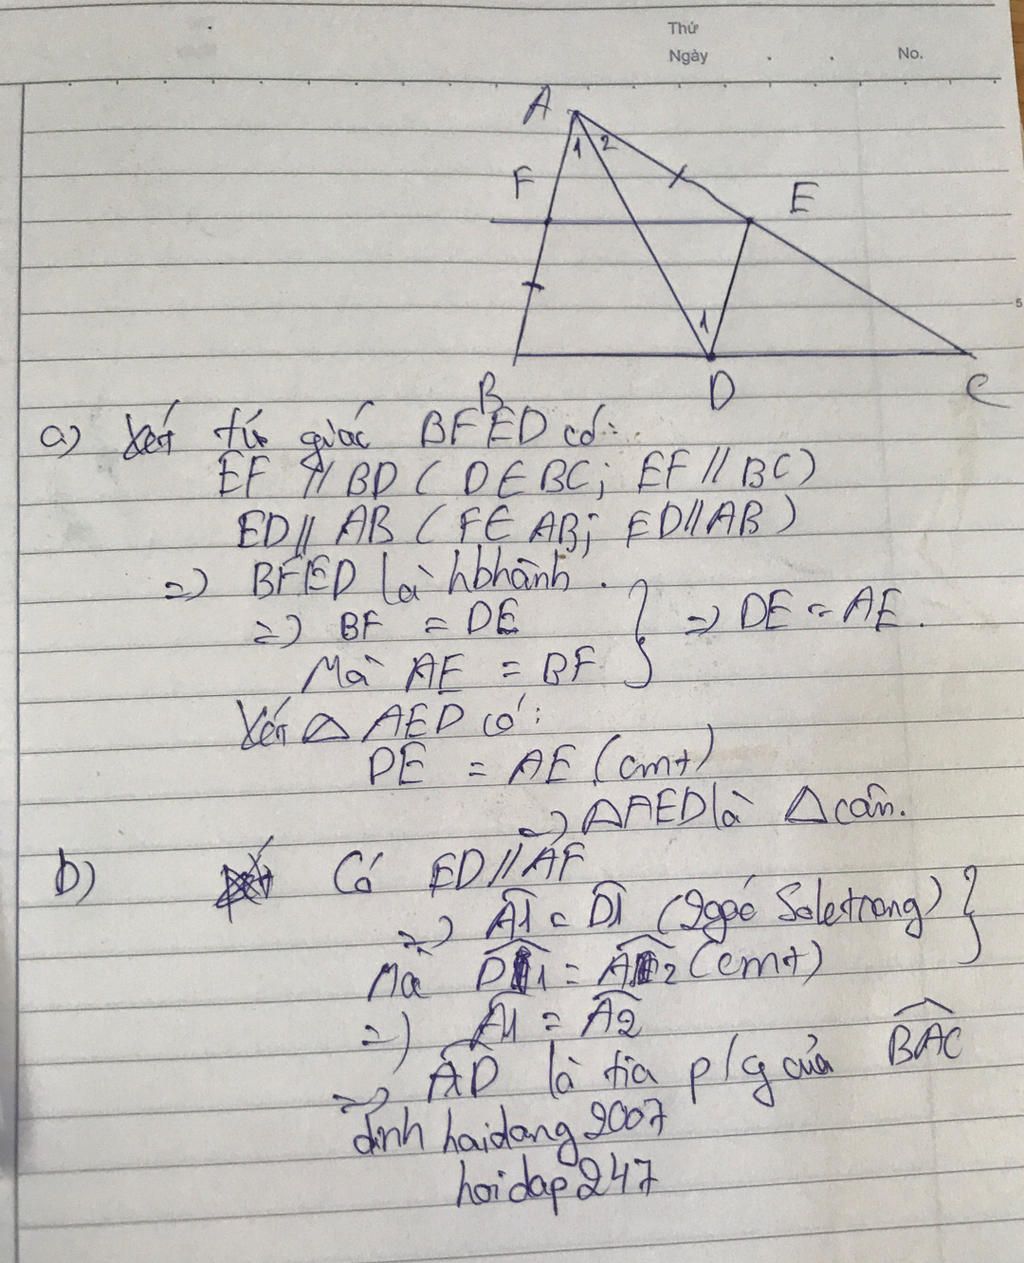 Thứ
Ngày . . No.
A
1 2
F
E
5
1
B
D
C
a) Xét tứ giác BFED có:
EF // BD ( D∈BC; EF // BC )
ED // AB ( F∈ AB; ED//AB )
=> BFED là hbhành .
=> BF = DE
Mà AE = BF } => DE = AE .
Xét △ AED có:
DE = AE (cmt)
=> △AED là △ cân.
b) Có ED // AF
=> Â1 = D̂1 (2góc Soletrong) }
Mà D̂1 = Â2 (cmt)
=> Â1 = Â2
=> AD là tia p/g của BAC
dinhhaidang2007
hoidap247